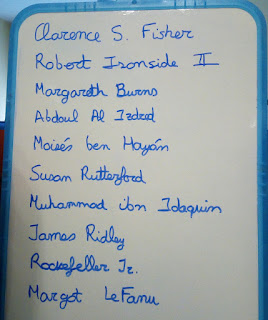 Clarence S. Fisher
Robert Ironside II
Margareth Burns
Abdoul Al Izdrd
Moisés ben Hayón
Susan Rutterford
Muhammad ibn Idaquin
James Ridley
Rockefeller Jr.
Margot LeFanu